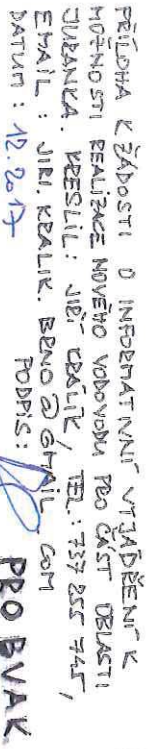 PŘÍLOHA K ŽÁDOSTI O INFORMATIVNÍ VYJÁDŘENÍ K
MOŽNOSTI REALIZACE NOVÉHO VODOVODU PRO ČÁST OBLASTI
JURANKA. KRESLIL: JIŘÍ KRÁLÍK, TEL: 737 255 745,
EMAIL: JIRI.KRALIK.BRNO@GMAIL.COM
DATUM: 12.2017 PODPIS:
PRO BVAK.